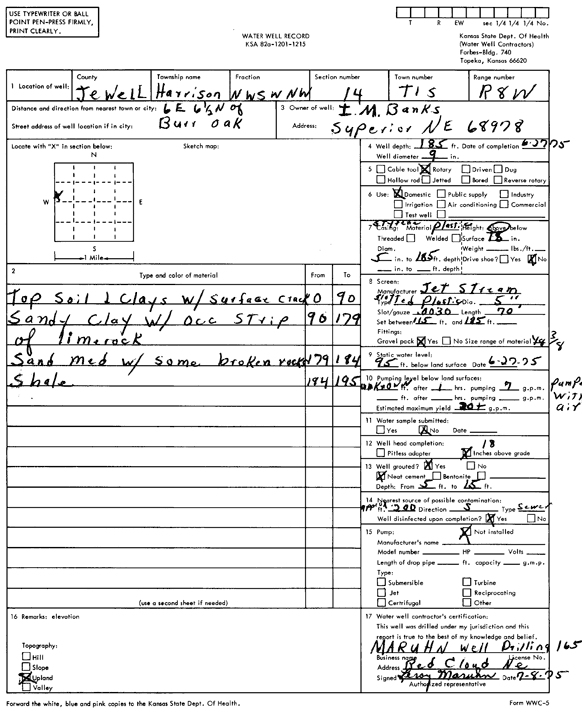 USE TYPEWRITER OR BALL
POINT PEN-PRESS FIRMLY,
PRINT CLEARLY.
T R EW sec 1/4 1/4 1/4 No.
WATER WELL RECORD
KSA 82a-1201-1215
Kansas State Dept. Of Health
(Water Well Contractors)
Forbes-Bldg. 740
Topeka, Kansas 66620
1 Location of well: County Jewell Township name Harrison Fraction NW SW NW Section number 14 Town number T1S Range number R8W
Distance and direction from nearest town or city: 6E 6½N of
Street address of well location if in city: Burr Oak
3 Owner of well: I. M. Banks
Address: Superior NE 68978
Locate with "X" in section below: Sketch map:
N
W X E
S
1 Mile
2 Type and color of material From To
Top Soil & Clays w/ Surface Crack 0 90
Sandy Clay w/ occ Strip 90 179
of limerock
Sand med w/ some broken rocks 179 184
Shale 184 195
(use a second sheet if needed)
16 Remarks: elevation
Topography:
Hill
Slope
X Upland
Valley
4 Well depth: 185 ft. Date of completion 6-27-75
Well diameter 9 in.
5 Cable tool X Rotary Driven Dug
Hollow rod Jetted Bored Reverse rotary
6 Use: X Domestic Public supply Industry
Irrigation Air conditioning Commercial
Test well
7 Casing: Material Plastic Height: Above/below
Threaded Welded Surface 18 in.
Diam. Weight lbs./ft.
5 in. to 185 ft. depth Drive shoe? Yes X No
in. to ft. depth
8 Screen:
Manufacturer Jet Stream
Type Slotted Plastic Dia. 5"
Slot/gauze .0030 Length 70'
Set between 115 ft. and 185 ft.
Fittings:
Gravel pack X Yes No Size range of material 1/8 3/8
9 Static water level:
95 ft. below land surface Date 6-27-75
10 Pumping level below land surfaces:
ft. after 1 hrs. pumping 7 g.p.m.
ft. after hrs. pumping g.p.m.
Estimated maximum yield 20+ g.p.m.
pump
with
air
11 Water sample submitted:
Yes X No Date
12 Well head completion: 18
Pitless adapter X Inches above grade
13 Well grouted? X Yes No
X Neat cement Bentonite
Depth: From 5 ft. to 15 ft.
14 Nearest source of possible contamination:
ft. 200 Direction S Type Sewer
Well disinfected upon completion? X Yes No
15 Pump: X Not installed
Manufacturer's name
Model number HP Volts
Length of drop pipe ft. capacity g.m.p.
Type:
Submersible Turbine
Jet Reciprocating
Centrifugal Other
17 Water well contractor's certification:
This well was drilled under my jurisdiction and this
report is true to the best of my knowledge and belief.
MARUHN Well Drilling 165
Business name License No.
Address Red Cloud Ne
Signed Leroy Maruhn Date 7-8-75
Authorized representative
Forward the white, blue and pink copies to the Kansas State Dept. Of Health.
Form WWC-5